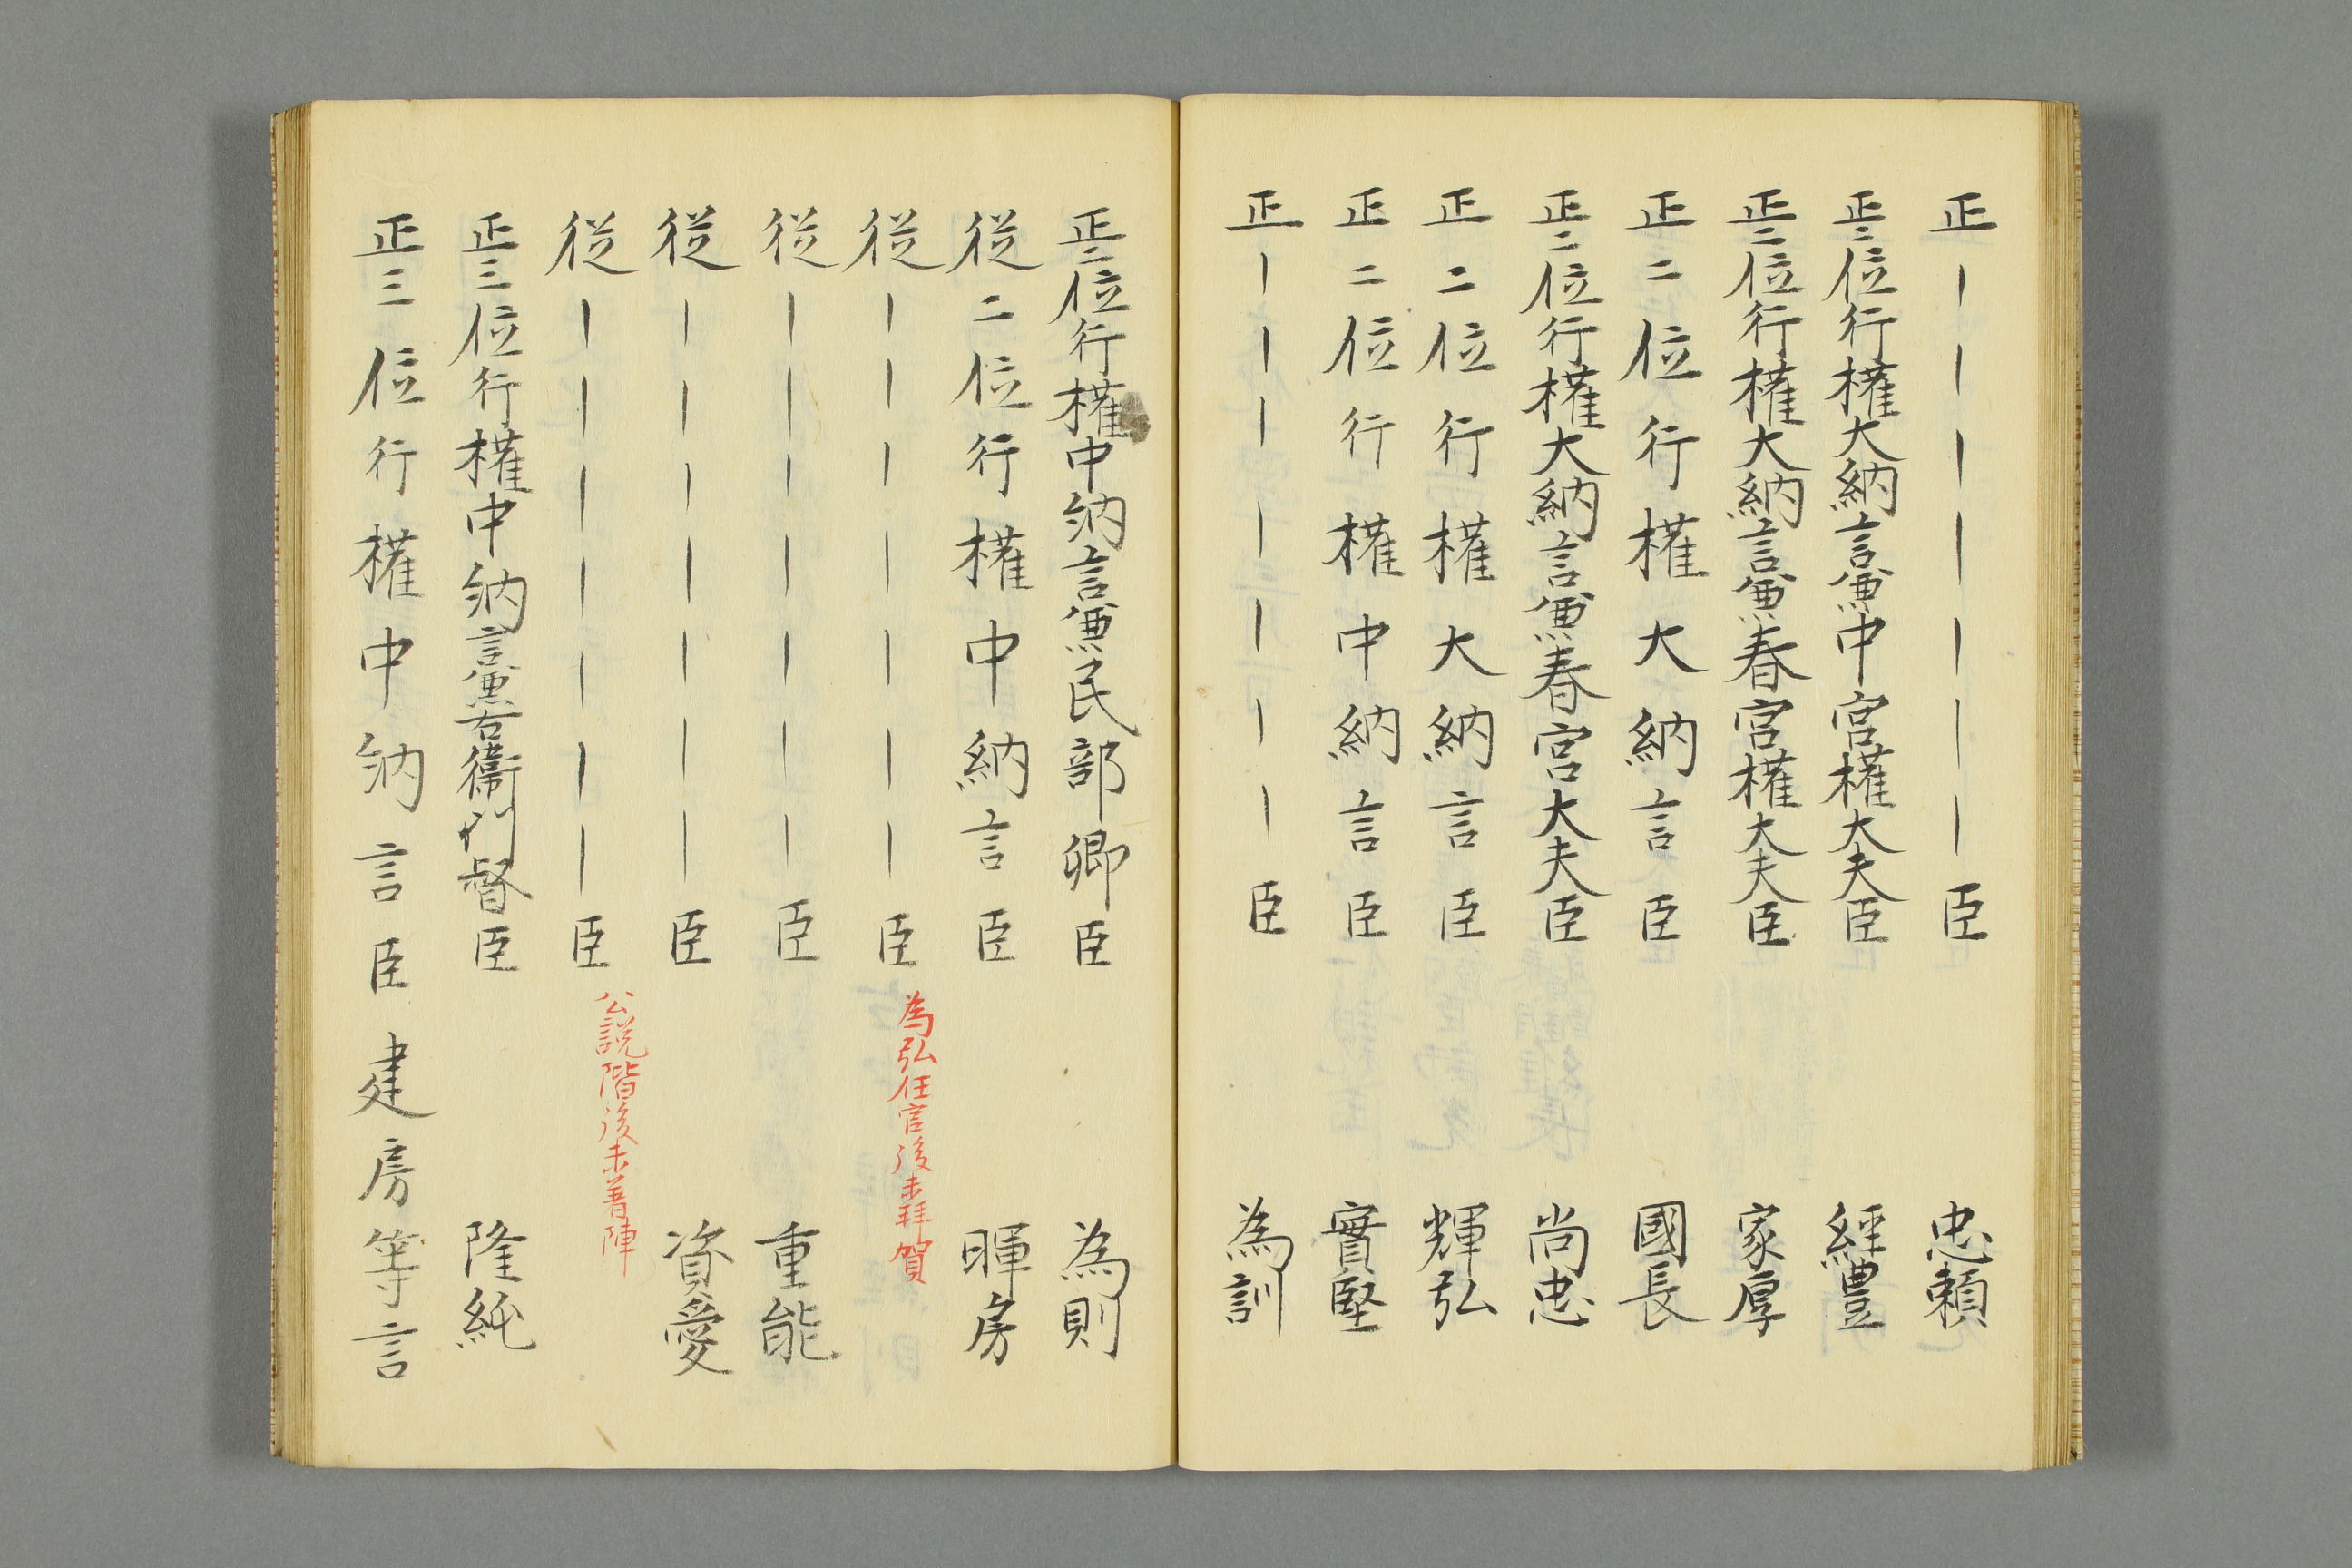 正｜｜｜｜｜｜｜臣 忠頼
正二位行權大納言兼中宮權大夫臣 經豊
正二位行權大納言兼春宮權大夫臣 家厚
正二位行權大納言臣 國長
正二位行權大納言兼春宮大夫臣 尚忠
正二位行權大納言臣 輝弘
正二位行權中納言臣 實堅
正｜｜｜｜｜｜｜臣 為訓
正二位行權中納言兼民部卿臣 為則
従二位行權中納言臣 暉房
従｜｜｜｜｜｜｜臣 為弘任官後未拜賀
従｜｜｜｜｜｜｜臣 重能
従｜｜｜｜｜｜｜臣 資愛
従｜｜｜｜｜｜｜臣 公説階後未著陣
正三位行權中納言兼右衛門督臣 隆純
正三位行權中納言臣建房等言